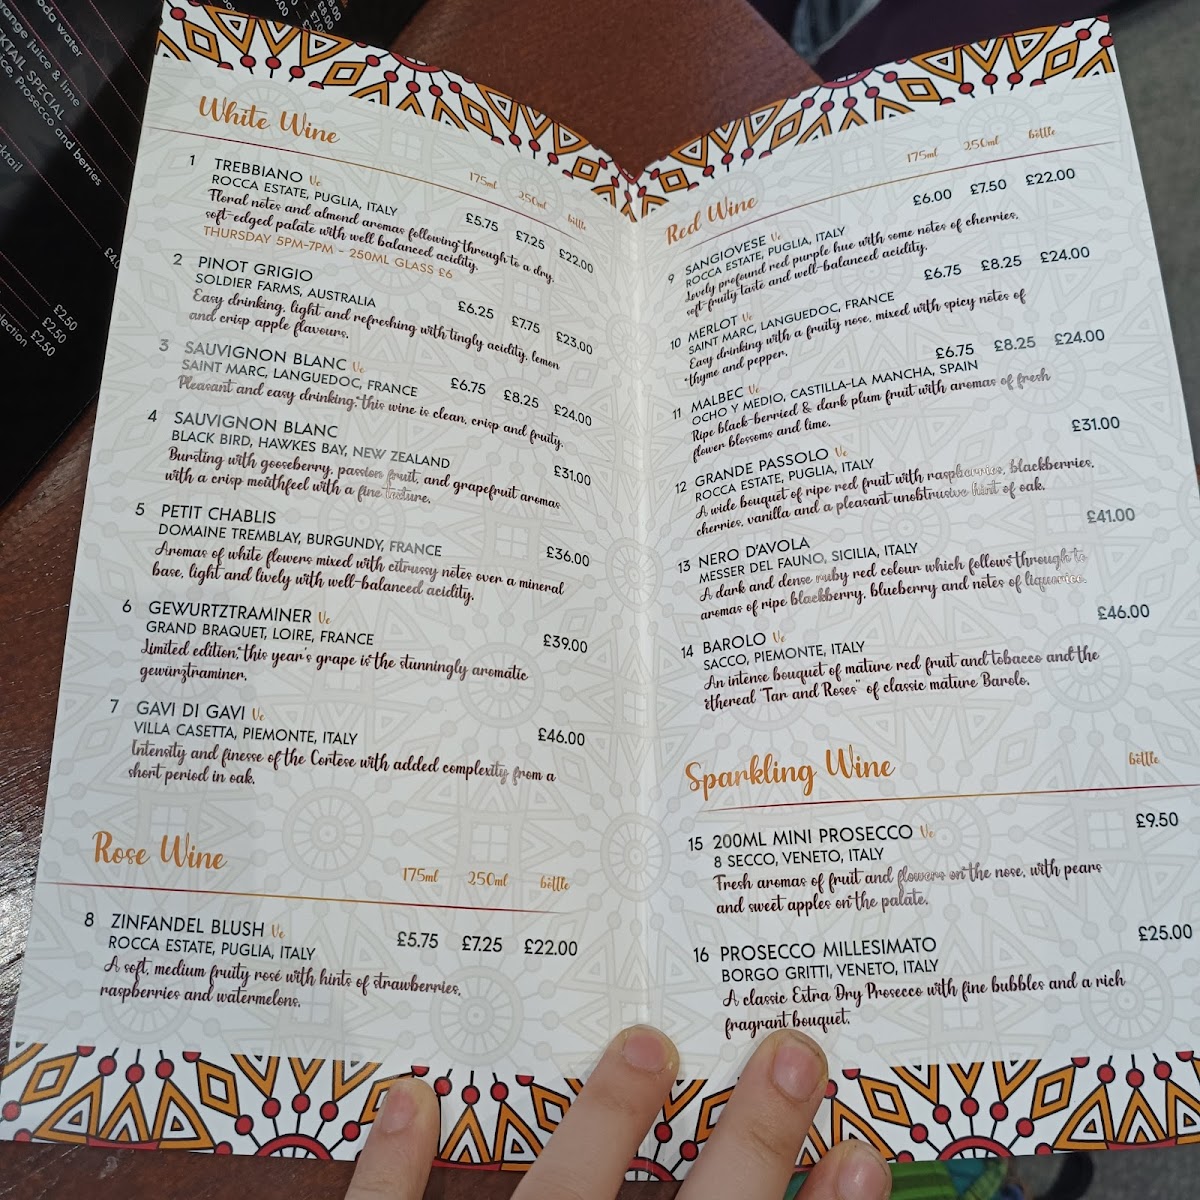 oda water
ange juice & lime
KTAIL SPECIAL
ice, Prosecco and berries
cktail
£2.50
£2.50
lection £2.50
White Wine
175ml 250ml bottle
1 TREBBIANO Ve
ROCCA ESTATE, PUGLIA, ITALY £5.75 £7.25 £22.00
Floral notes and almond aromas following through to a dry,
soft-edged palate with well balanced acidity.
THURSDAY 5PM-7PM - 250ML GLASS £6
2 PINOT GRIGIO
SOLDIER FARMS, AUSTRALIA £6.25 £7.75 £23.00
Easy drinking, light and refreshing with tingly acidity, lemon
and crisp apple flavours.
3 SAUVIGNON BLANC Ve
SAINT MARC, LANGUEDOC, FRANCE £6.75 £8.25 £24.00
Pleasant and easy drinking, this wine is clean, crisp and fruity.
4 SAUVIGNON BLANC
BLACK BIRD, HAWKES BAY, NEW ZEALAND £31.00
Bursting with gooseberry, passion fruit, and grapefruit aromas
with a crisp mouthfeel with a fine texture.
5 PETIT CHABLIS
DOMAINE TREMBLAY, BURGUNDY, FRANCE £36.00
Aromas of white flowers mixed with citrussy notes over a mineral
base, light and lively with well-balanced acidity.
6 GEWURTZTRAMINER Ve
GRAND BRAQUET, LOIRE, FRANCE £39.00
Limited edition, this year's grape is the stunningly aromatic
gewürztraminer.
7 GAVI DI GAVI Ve
VILLA CASETTA, PIEMONTE, ITALY £46.00
Intensity and finesse of the Cortese with added complexity from a
short period in oak.
Rose Wine
175ml 250ml bottle
8 ZINFANDEL BLUSH Ve £5.75 £7.25 £22.00
ROCCA ESTATE, PUGLIA, ITALY
A soft, medium fruity rosé with hints of strawberries,
raspberries and watermelons.
Red Wine
175ml 250ml bottle
9 SANGIOVESE Ve £6.00 £7.50 £22.00
ROCCA ESTATE, PUGLIA, ITALY
Lovely profound red purple hue with some notes of cherries,
soft-fruity taste and well-balanced acidity.
10 MERLOT Ve £6.75 £8.25 £24.00
SAINT MARC, LANGUEDOC, FRANCE
Easy drinking with a fruity nose, mixed with spicy notes of
thyme and pepper.
11 MALBEC Ve £6.75 £8.25 £24.00
OCHO Y MEDIO, CASTILLA-LA MANCHA, SPAIN
Ripe black-berried & dark plum fruit with aromas of fresh
flower blossoms and lime.
12 GRANDE PASSOLO Ve £31.00
ROCCA ESTATE, PUGLIA, ITALY
A wide bouquet of ripe red fruit with raspberries, blackberries,
cherries, vanilla and a pleasant unobtrusive hint of oak.
13 NERO D'AVOLA £41.00
MESSER DEL FAUNO, SICILIA, ITALY
A dark and dense ruby red colour which follows through to
aromas of ripe blackberry, blueberry and notes of liquorice.
14 BAROLO Ve £46.00
SACCO, PIEMONTE, ITALY
An intense bouquet of mature red fruit and tobacco and the
ethereal "Tar and Roses" of classic mature Barolo.
Sparkling Wine
bottle
15 200ML MINI PROSECCO Ve £9.50
8 SECCO, VENETO, ITALY
Fresh aromas of fruit and flowers on the nose, with pears
and sweet apples on the palate.
16 PROSECCO MILLESIMATO £25.00
BORGO GRITTI, VENETO, ITALY
A classic Extra Dry Prosecco with fine bubbles and a rich
fragrant bouquet.